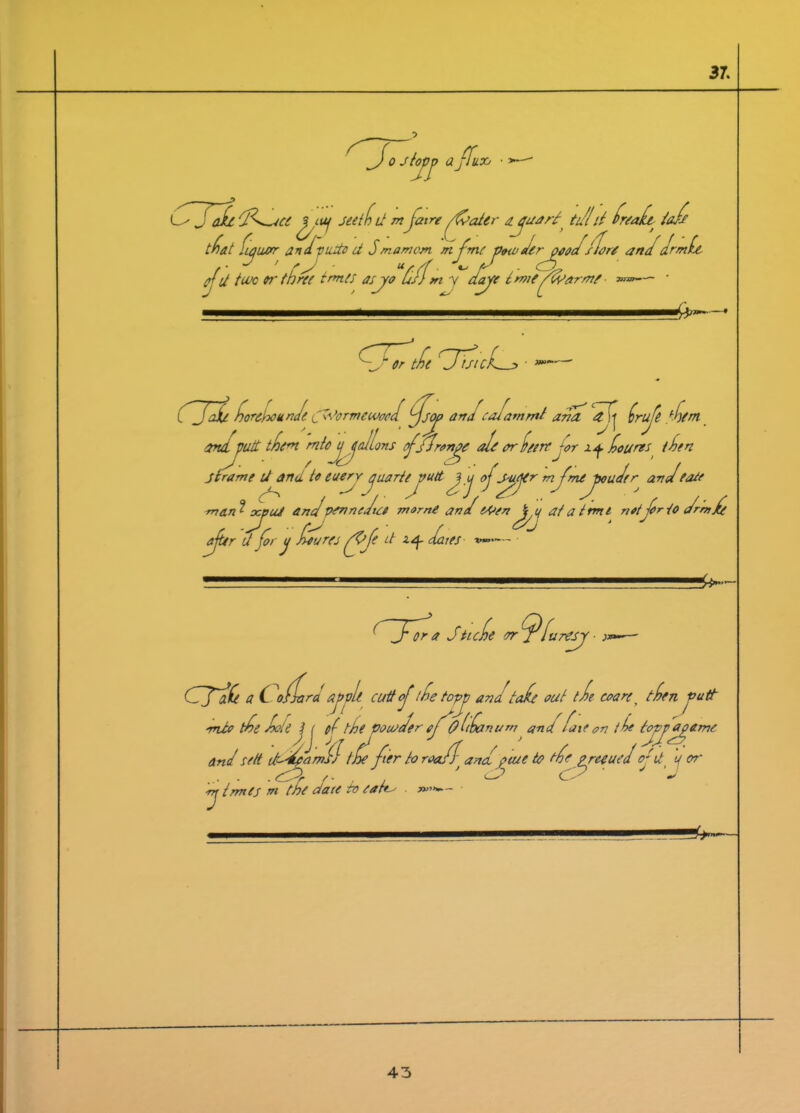 37.
To stopp a flux
Take Rice ℥ iiij seeth it in faire Water a quart, till it breake, take
that liquor and putto it Sinamom in fine powder good store and drinke
of it two or three times as yo^u list in y^e daye time Warme
For the Tisick
Take horehounde Wormewood Isop and calamint ana bruse them
and putt them into ij gallons of stronge ale or beere for 24 houres, then
straine it and to euery quarte putt ℥ ij of suger in fine pouder and eate
and pennedice morne and even ℥ ij at a time not for to drinke
after it for ij houres Vse it 24 daies
For a Sticke or Pluresy
Take a Collard apple cutt of the topp and take out the coare, then putt
into the hole ℥ j of the powder of Olibanum and laie on the topp againe
and sett it against the fier to roast, and giue to the greeued of it, ij or
iij times in the daie to eate
43